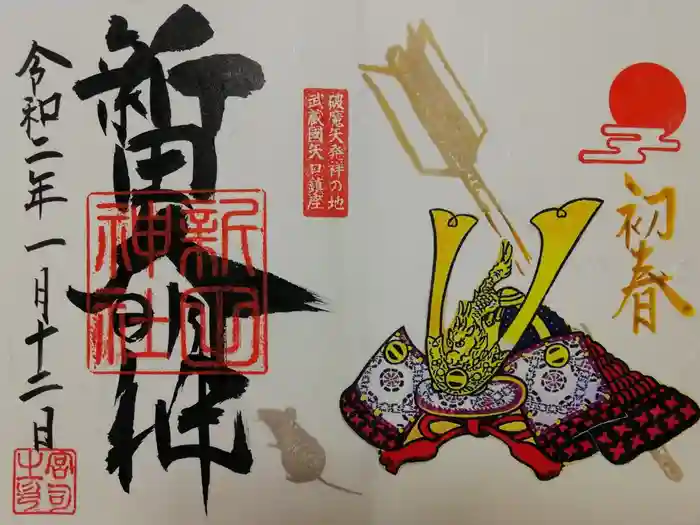 初春
破魔矢発祥の地
武蔵國矢口鎮座
新田大明神
新田神社
令和二年一月十二日
宮司之印